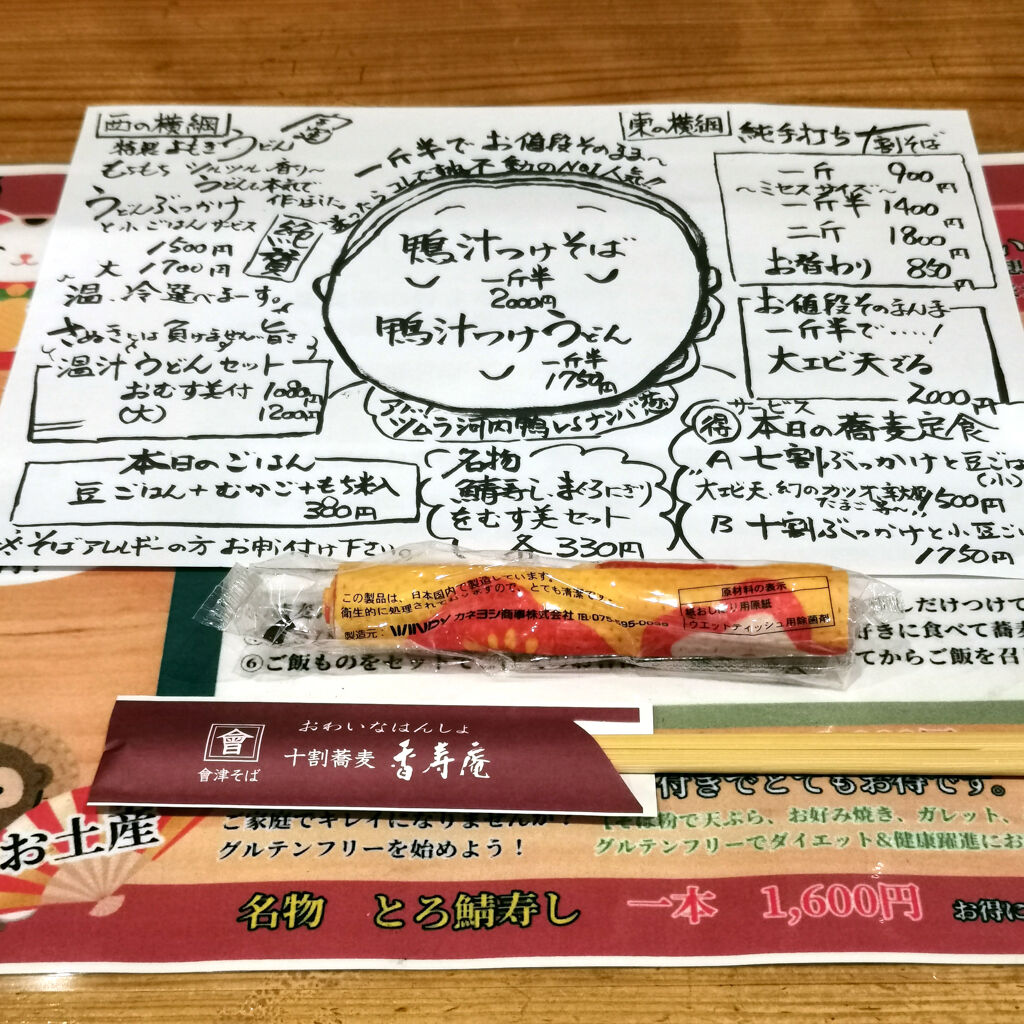 西の横綱
特選よもぎうどん
もちもち ツルツル 香り〜
うどんも本気で
作りました
うどんぶっかけ
と小ごはんサービス
1500円
大 1700円
純賞
温、冷選べまーす。
さぬきには負けません旨さ
温汁うどんセット
おむす美付 1080円
(大) 1200円
一斤半でお値段そのまま〜
迷ったらコレで決まり不動のNo1人気!!
鴨汁つけそば
一斤半
2000円
鴨汁つけうどん
一斤半
1750円
ツムラ河内鴨
東の横綱
純手打ち 十割そば
一斤 900円
〜ミセスサイズ〜
一斤半 1400円
二斤 1800円
お替わり 850円
お値段そのまんま
一斤半で‥‥!
大エビ天でる
2000円
サービス
得 本日の蕎麦定食
A 七割ぶっかけと豆ごは
(小)
大エビ天、幻のカツオ
1500円
B 十割ぶっかけと小豆ご
1750円
本日のごはん
豆ごはん+むかご+もち米入
380円
名物
鯖寿し、まぐろにぎり
をむす美セット
各330円
※そばアレルギーの方お申付け下さい。
この製品は、日本国内で製造しています。
衛生的に処理されておりますので、とても清潔です。
製造元: WINDY カネヨシ商事株式会社 TEL 075-595-0039
原材料の表示
紙おしぼり用原紙
ウエットティッシュ用除菌剤
しだけつけて
好きに食べて蕎麦
⑥ご飯ものをセットで
てからご飯を召
おわいなはんしょ
會
會津そば
十割蕎麦 香寿庵
付きでとてもお得です。
お土産
ご家庭でキレイになりませんか?
グルテンフリーを始めよう!
【そば粉で天ぷら、お好み焼き、ガレット、
グルテンフリーでダイエット&健康躍進にお
名物 とろ鯖寿し 一本 1,600円 お得に